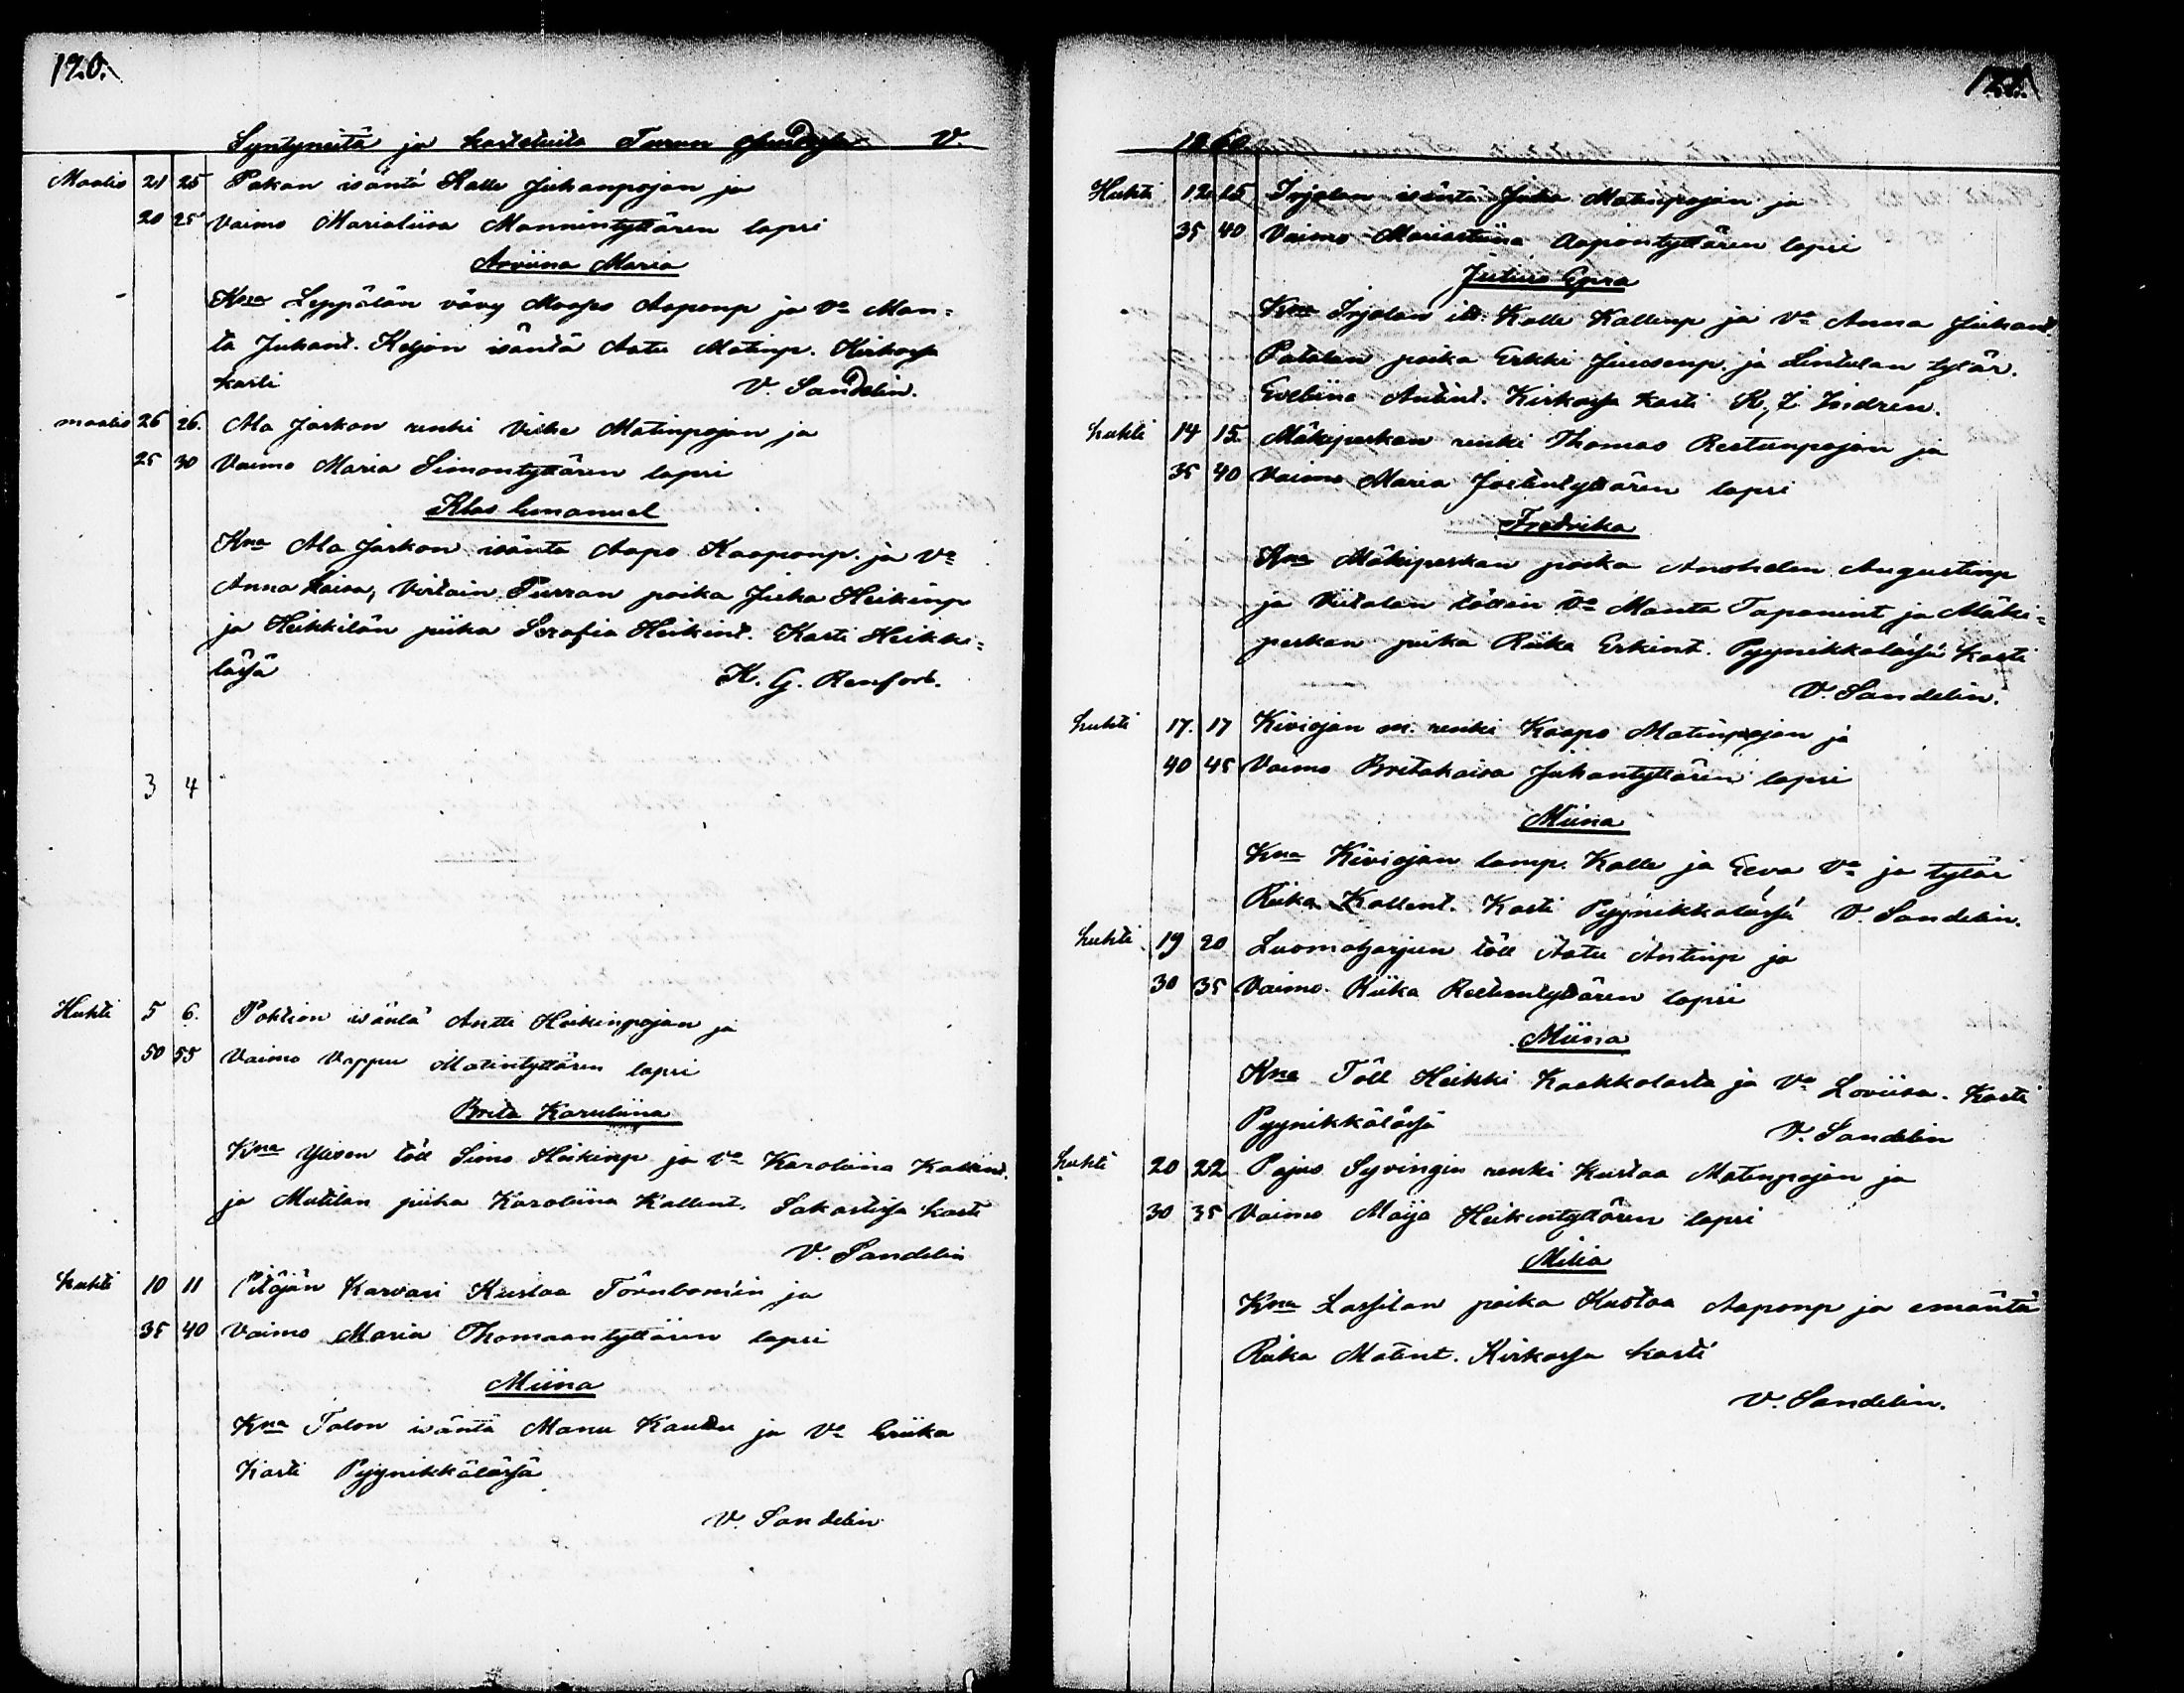 120.
Syntyneitä ja kastetuita Turun V.
Maalis 21 25 Pakan isäntä Kalle Juhanpojan ja
20 25 Vaimo Marialiisa Mannintyttären lapsi
Arviina Maria
Kna Leppälän vävy Maapo Aaponp ja Va Man=
ta Juhant. Keljon isäntä Aatu Matinp. Kirkossa
kasti V. Sandelin.
maalis 26 26. Ala Jaskan renki Vihe Matinpojan ja
25 30 Vaimo Maria Simontyttären lapsi
Klas Emanuel
Kna Ala Jaskan isäntä Aapo Kaaponp. ja Va
Anna Kaisa, Virtain Purran poika Juha Heikinp
ja Heikkilän piika Serafia Heikint. Kasti Heikki=
lässä K. G. Renfort.
3 4
Huhti 5 6. Pohtion isäntä Antti Heikinpojan ja
50 55 Vaimo Vappu Matintyttären lapsi
Brita Karuliina
Kna Ylisen töll Simo Heikinp ja Va Karoliina Kallent.
ja Mutilan piika Karoliina Kallent. Sakastissa kasti
V. Sandelin
huhti 10 11 Pitäjän Karvari Kustaa Törnbomin ja
35 40 Vaimo Maria Thomaantyttären lapsi
Miina
Kna Talon isäntä Manu Kaudu ja Va Eriika
Kasti Pyynikkälässä
V. Sandelin
1860.
Huhti 12 15 Irjalan isäntä Juha Matinpojan ja
35 40 Vaimo Mariastiina Aapontyttären lapsi
Julius Epra
Kna Irjalan its. Kalle Kallenp ja Va Anna Juhant.
Patalan poika Erkki Juusonp. ja Lintulan tytär.
Eveliina Antint. Kirkossa kasti K. J. Indren.
huhti 14 15. Mäkiperkan renki Thomas Reetunpojan ja
35 40 Vaimo Maria Jostintyttären lapsi
Fredrika
Kna Mäkiperkan poika Anshelm Augustinp
ja Viitalan töllin Va Manta Tapanint ja Mäki=
perkan piika Riika Erkint. Pyynikkälässä kasti
V. Sandelin.
huhti 17. 17 Kiviojan m. renki Kaapo Matinpojan ja
40 45 Vaimo Britakaisa Juhantyttären lapsi
Miina
Kna Kiviojan lamp. Kalle ja Eeva Va ja tytär
Riika Kallent. Kasti Pyynikkälässä V. Sandelin.
huhti 19 20 Luomaharjun töll Aatu Antinp ja
30 35 Vaimo Riika Reetuntyttären lapsi
Miina
Kna Töll Heikki Kaakkolasta ja Va Loviisa. Kasti
Pyynikkälässä V. Sandelin
huhti 20 22 Pajus Syvingin renki Kustaa Matinpojan ja
30 35 Vaimo Maija Heikintyttären lapsi
Milia
Kna Lassilan poika Kustaa Aaponp ja emäntä
Riika Matint. Kirkossa kasti
V. Sandelin.